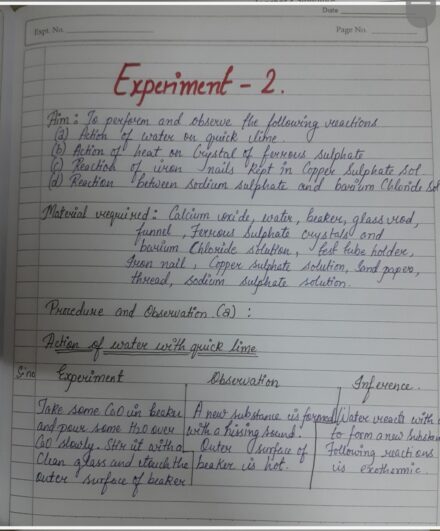 Date
Expt. No.
Page No.
Experiment - 2.
Aim : To perform and observe the following reactions
(a) Action of water on quick lime
(b) Action of heat on Crystal of ferrous sulphate
(c) Reaction of iron nails kept in Copper Sulphate Sol
(d) Reaction between sodium sulphate and barium Chloride Sol
Material required : Calcium oxide, water, beaker, glass rod,
funnel, Ferrous Sulphate crystals and
barium Chloride solution, test tube holder,
Iron nail, Copper sulphate solution, Sand paper,
thread, sodium sulphate solution.
Procedure and Observation (a) :
Action of water with quick lime
S.no Experiment Observation Inference.
Take some CaO in beaker A new substance is formed Water reacts with
and pour some H2O over with a hissing sound. to form a new Substan
CaO slowly. Stir it with a Outer surface of Following reactions
Clean glass and touch the beaker is hot. is exothermic.
outer surface of beaker